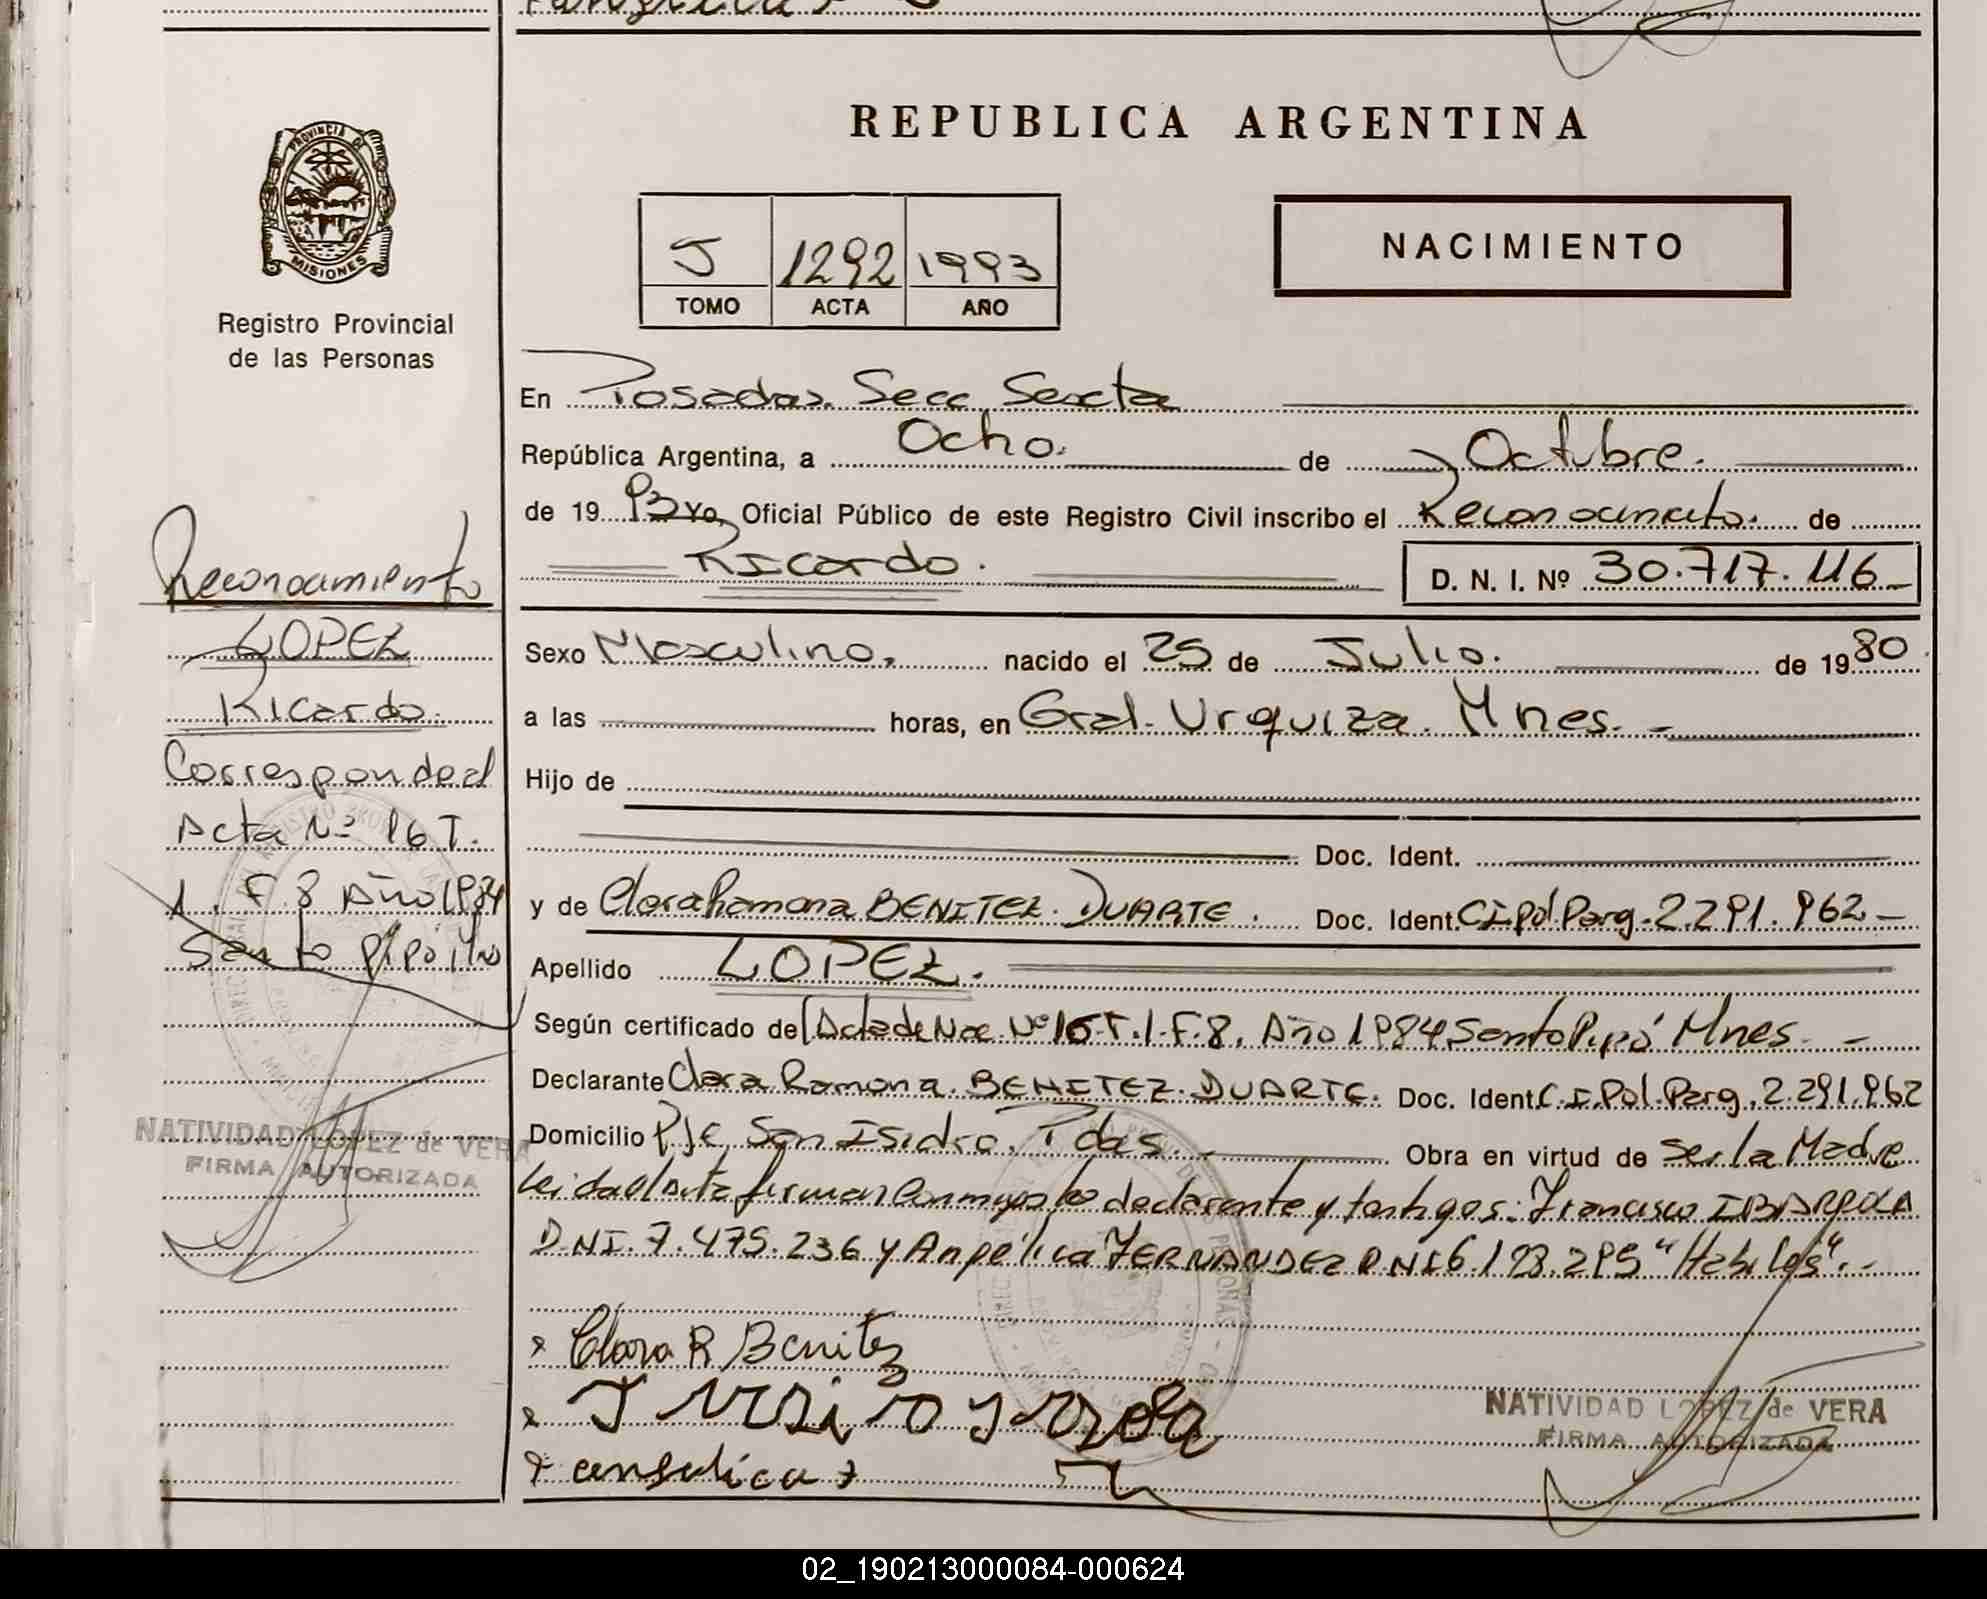 REPUBLICA ARGENTINA
PROVINCIA DE
MISIONES
Registro Provincial
de las Personas
J 1292 1993
TOMO ACTA AÑO
NACIMIENTO
En Posadas. Secc Sexta
República Argentina, a Ocho. de Octubre.
de 19 93 Yo, Oficial Público de este Registro Civil inscribo el Reconocimiento. de
Ricardo. D. N. I. Nº 30.717.116-
Sexo Masculino. nacido el 25 de Julio. de 1980
a las horas, en Gral. Urquiza. Mnes.-
Hijo de
Doc. Ident.
y de Clara Ramona BENITEZ. DUARTE. Doc. Ident. CI Pol Parg. 2.291.962-
Apellido LOPEZ.
Según certificado de Acta de Nac. Nº 16 T. 1. F. 8. Año 1984 Santo Pipó Mnes. -
Declarante Clara Ramona. BENITEZ. DUARTE. Doc. Ident. C.I. Pol. Parg. 2.291.962
Domicilio Pje San Isidro. Pdas. Obra en virtud de ser la Madre
Leida el Acta firman conmigo la declarante y testigos: Francisco
D.N.I. 7.475.236 y Angélica FERNANDEZ DNI 6.128.295 "Habiles".-
x Clara R Benitez
x
x angelica f
NATIVIDAD LOPEZ de VERA
FIRMA AUTORIZADA
Reconocimiento
LOPEZ
Ricardo.
Corresponde al
Acta Nº 16 T.
1. F. 8 Año 1984
Santo Pipó Mns
NATIVIDAD LOPEZ de VERA
FIRMA AUTORIZADA
02_190213000084-000624